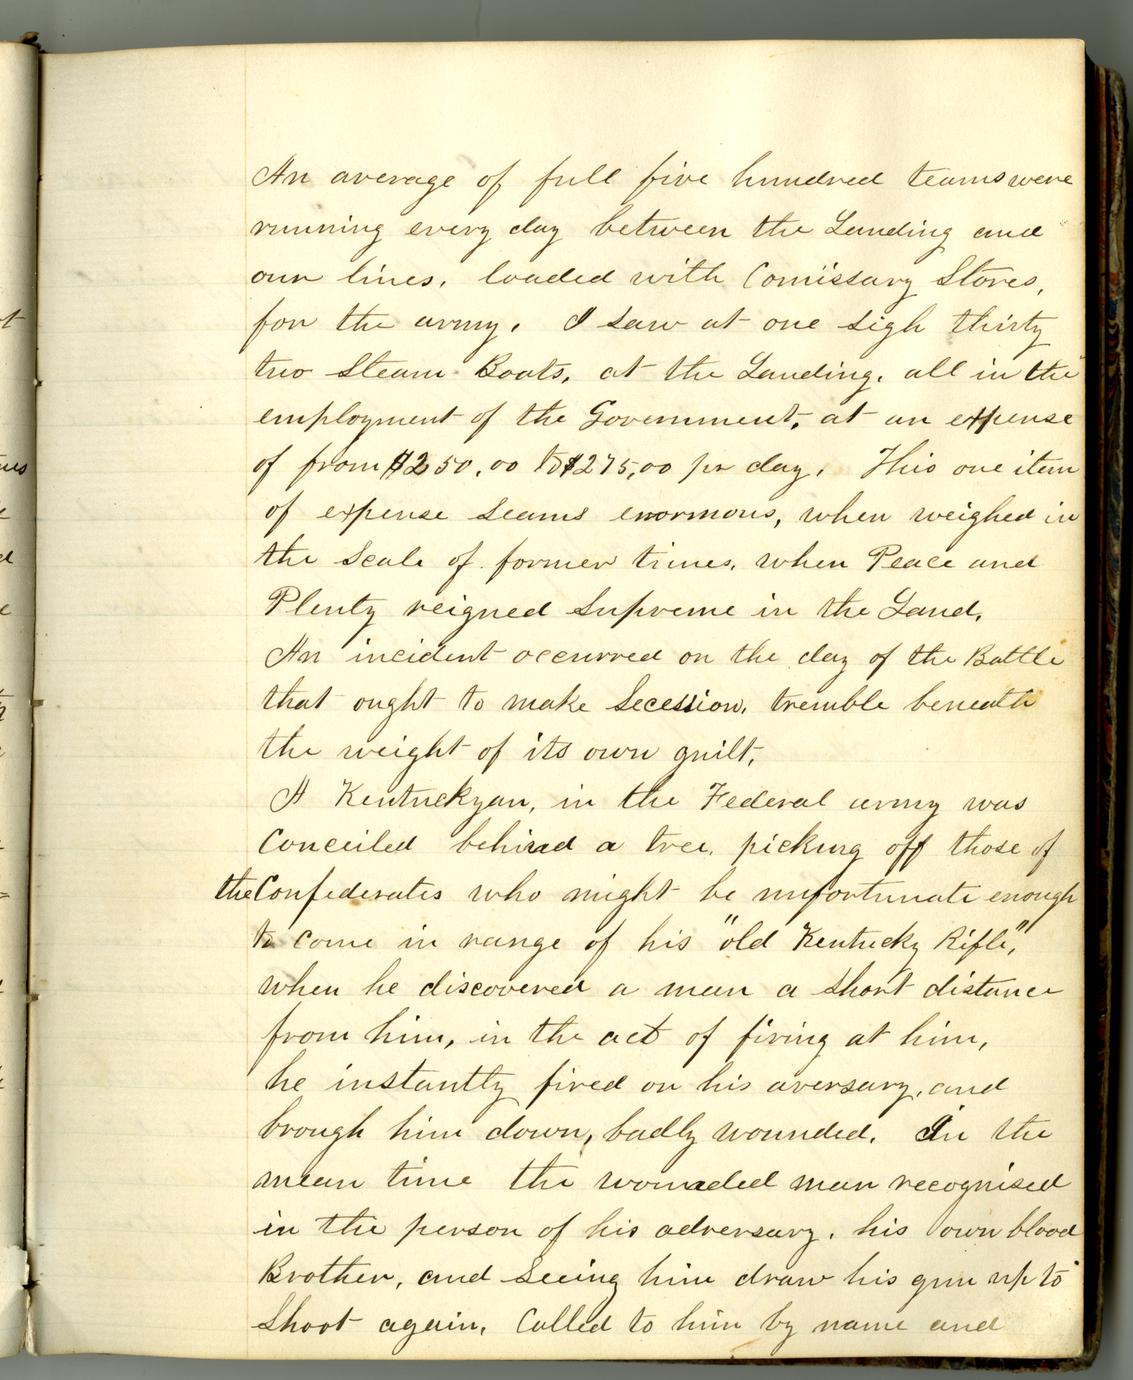 An average of full five hundred teams were
running every day between the Landing and
our lines, loaded with Comissary Stores,
for the army. I saw at one sigh thirty
two Steam Boats, at the Landing, all in the
employment of the Government, at an expense
of from $250,00 to $275,00 pr day. This one item
of expense seams enormous, when weighed in
the Scale of former times, when Peace and
Plenty reigned Supreme in the Land.
An incident occurred on the day of the Battle
that ought to make Secession, tremble beneath
the weight of its own guilt.
A Kentuckyan, in the Federal army was
Conceiled behind a tree, picking off those of
the Confederates who might be unfortunate enough
to come in range of his "old Kentucky Rifle",
when he discovered a man a short distance
from him, in the act of firing at him,
he instantly fired on his aversary, and
brough him down, badly wounded. In the
mean time the wounded man recognised
in the person of his adversary, his own blood
Brother, and Seeing him draw his gun up to
Shoot again, Called to him by name and